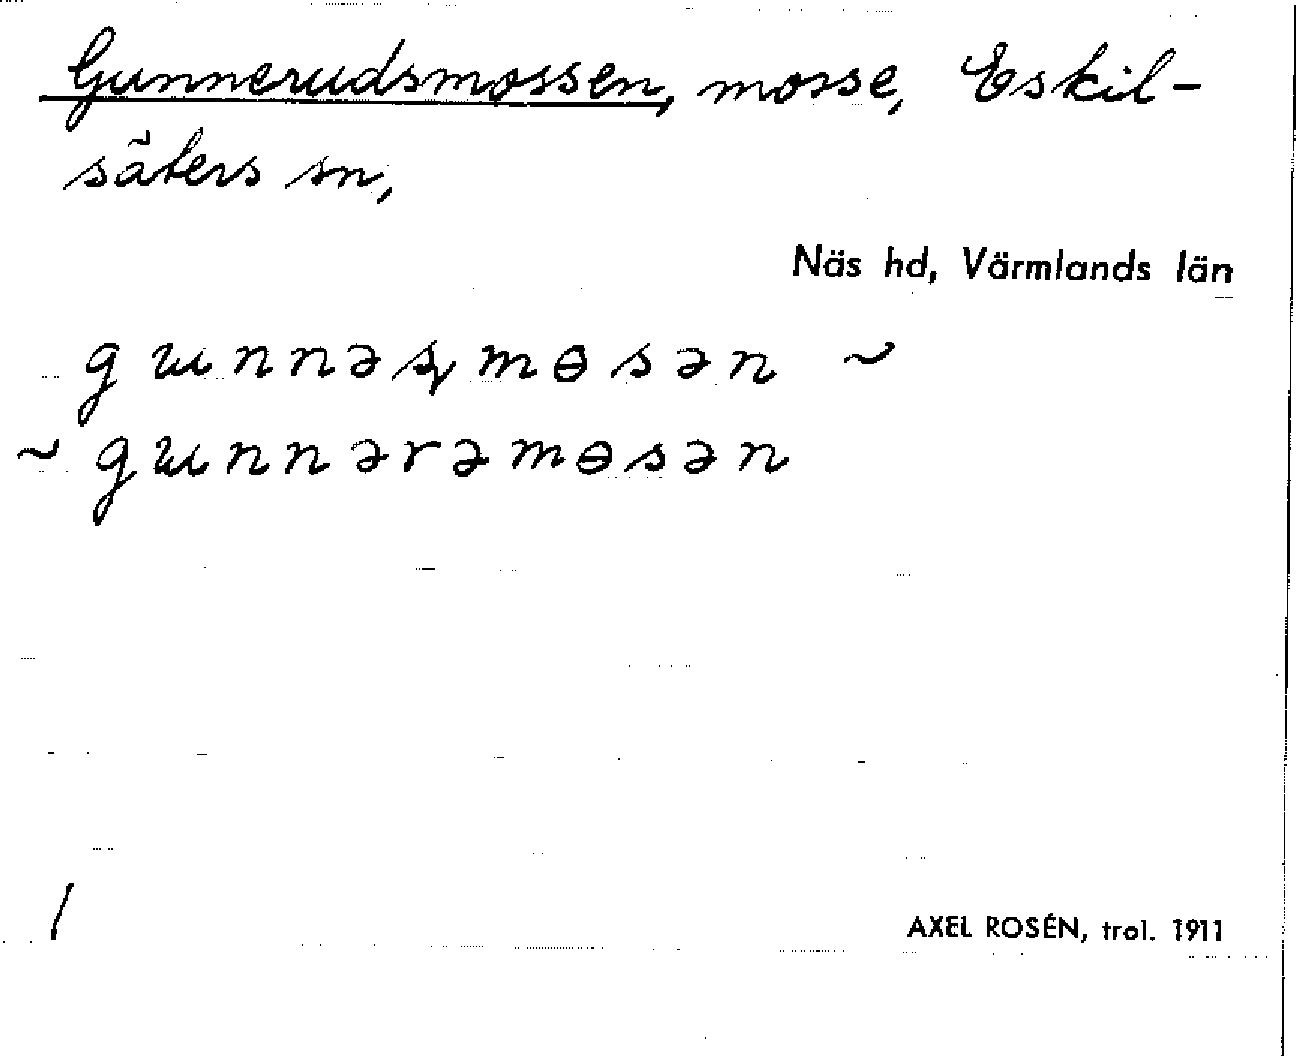 Gunnerudsmossen, mosse, Eskil-
säters sn,
Näs hd, Värmlands län
gunnəʂmɵsən ~
~ gunnərəmɵsən
/
AXEL ROSÉN, trol. 1911